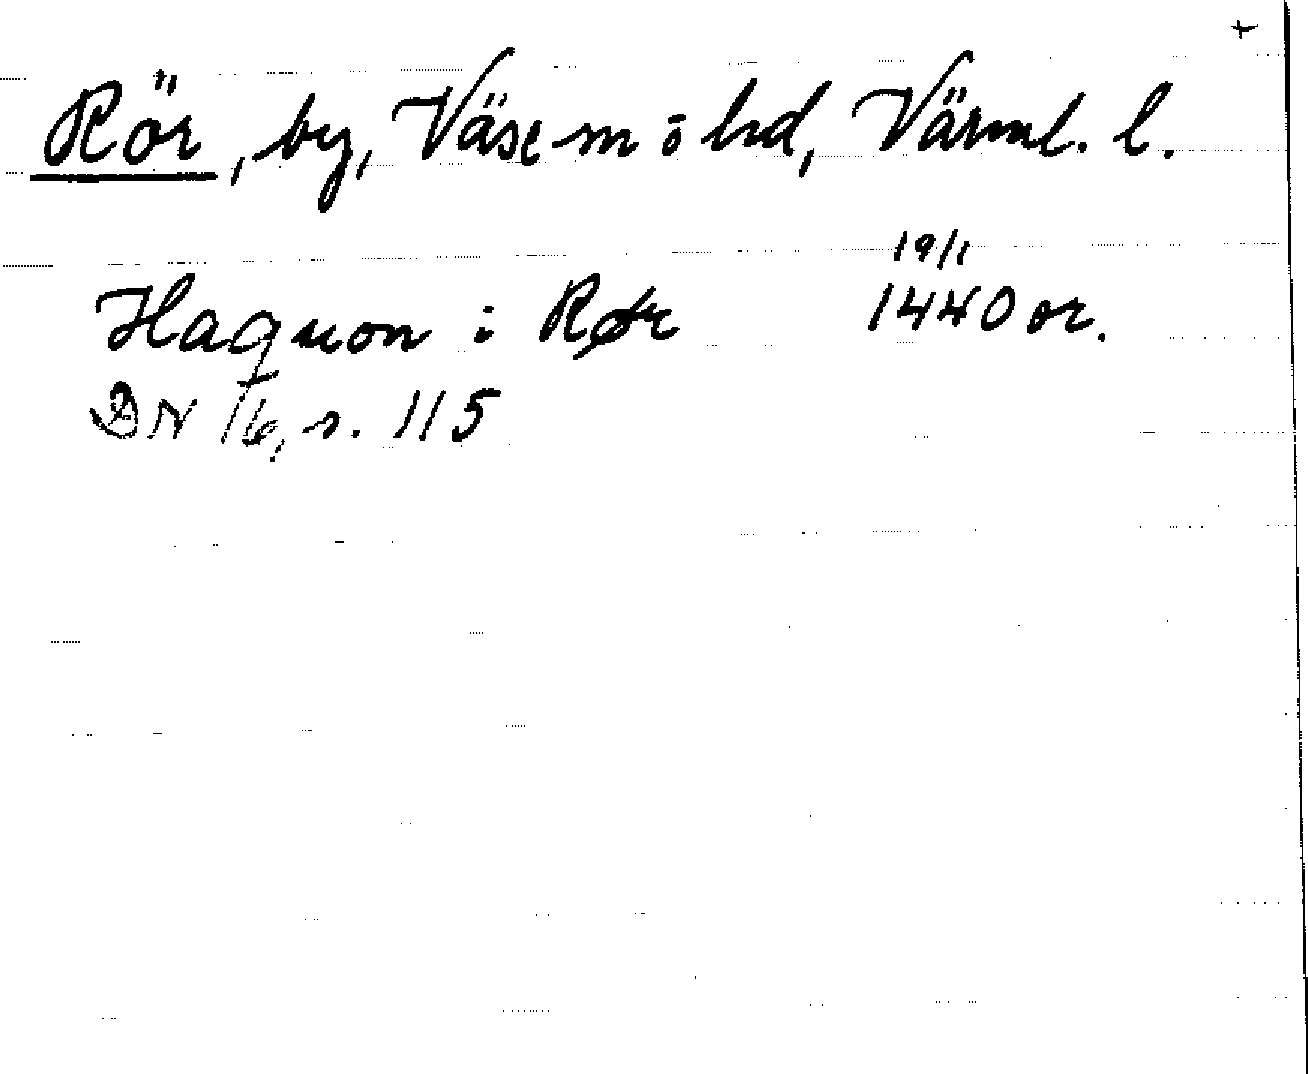 +
Rör, by, Väse sn o hd, Värml. l.
19/1
Haquon i Rør 1440 or.
DN 16, s. 115